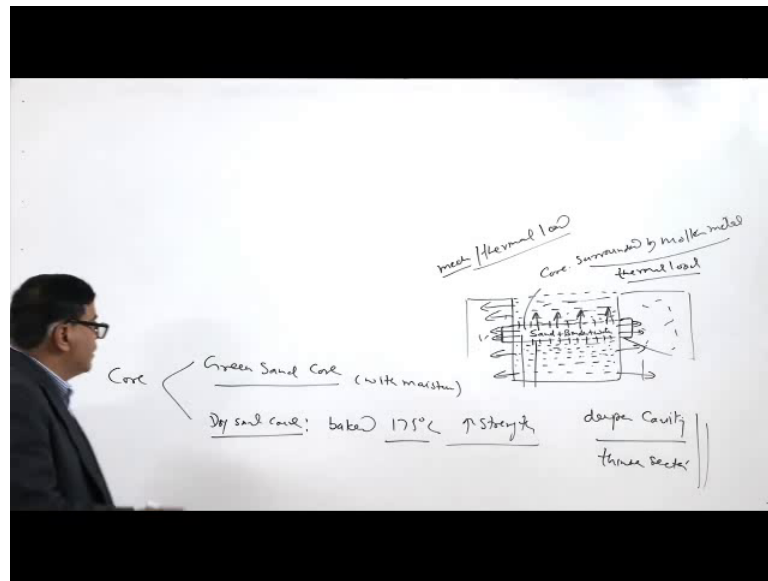 mech / thermal load
Core. Surrounded by molten metal
thermal load
Sand +
Core
Green Sand Core (with moisture)
Dry sand core: baked 175°C ↑ Strength
deeper Cavity